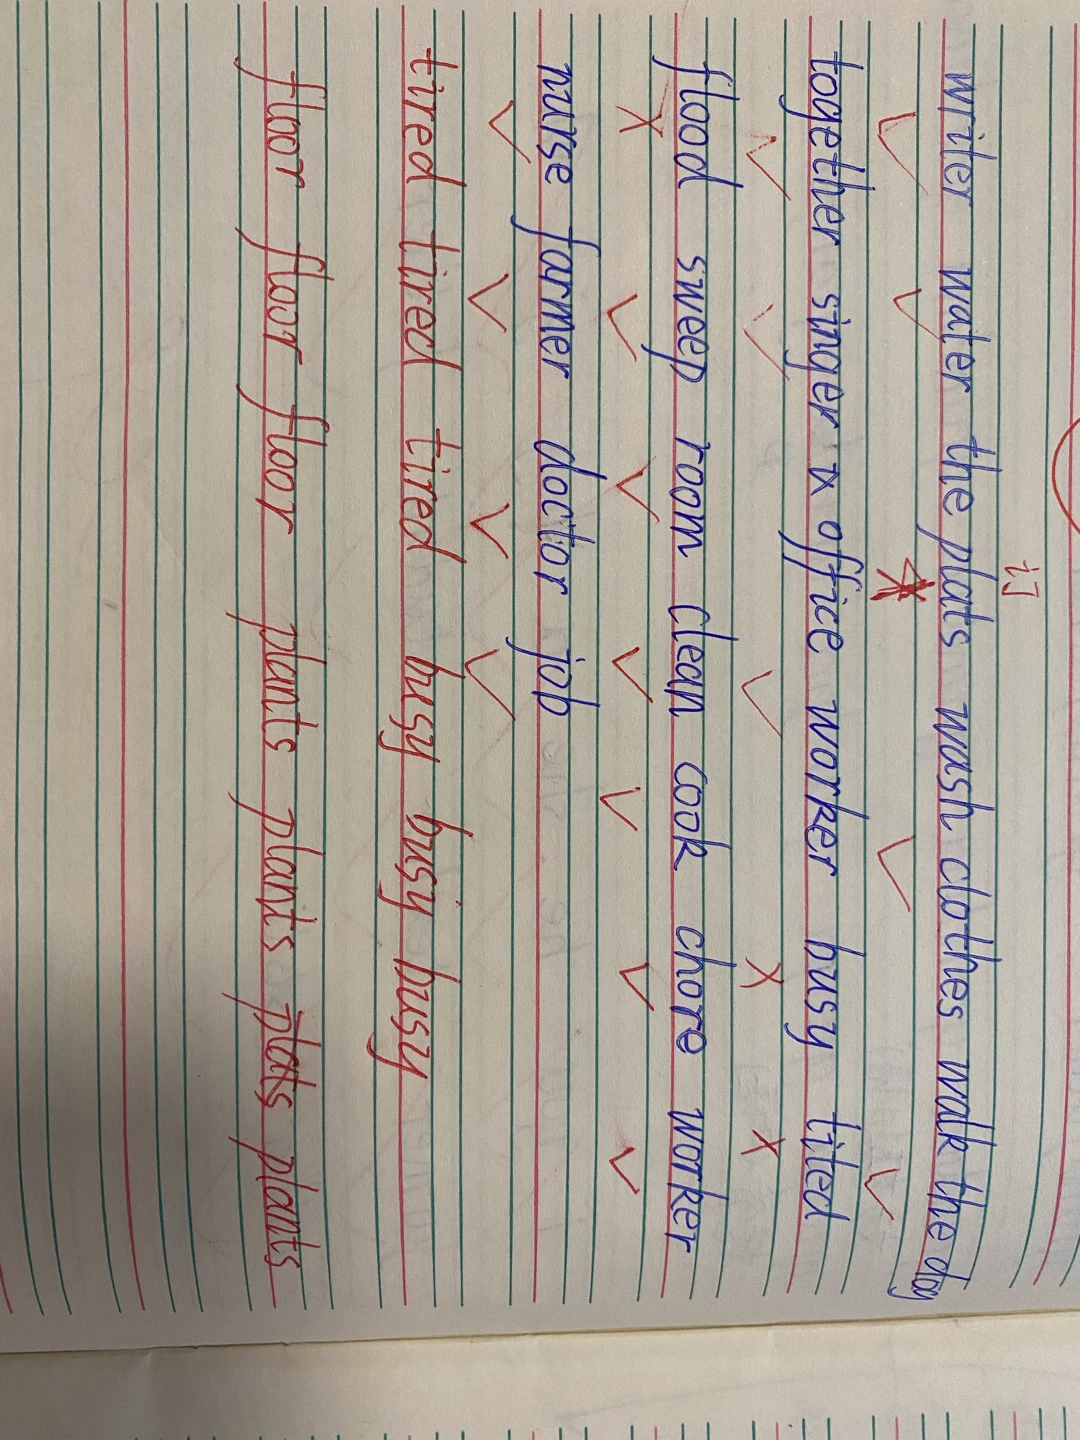 writer water the plats wash clothes walk the dog
together singer x office worker busy tited
flood sweep room clean cook chore worker
nurse farmer doctor job
tired tired tired busy busy busy
floor floor floor plants plants plats plants